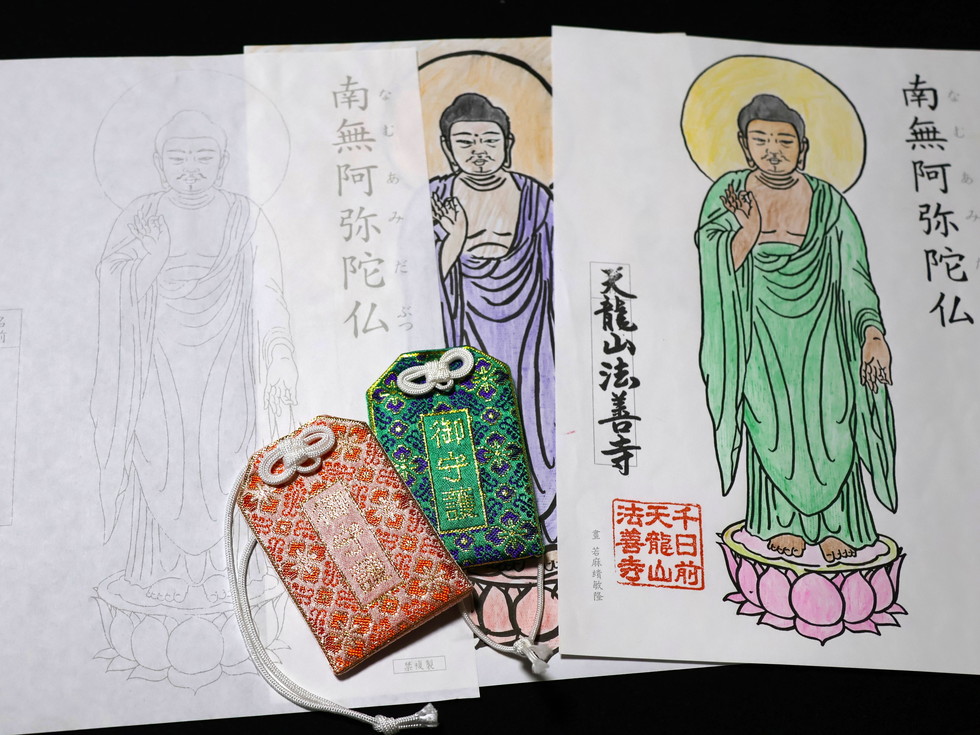 名前
南無阿弥陀仏
なむあみだぶつ
御守護
御守護
禁複製
天龍山法善寺
千日前
天龍山
法善寺
画 若麻績敏隆
南無阿弥陀仏
なむあみだ